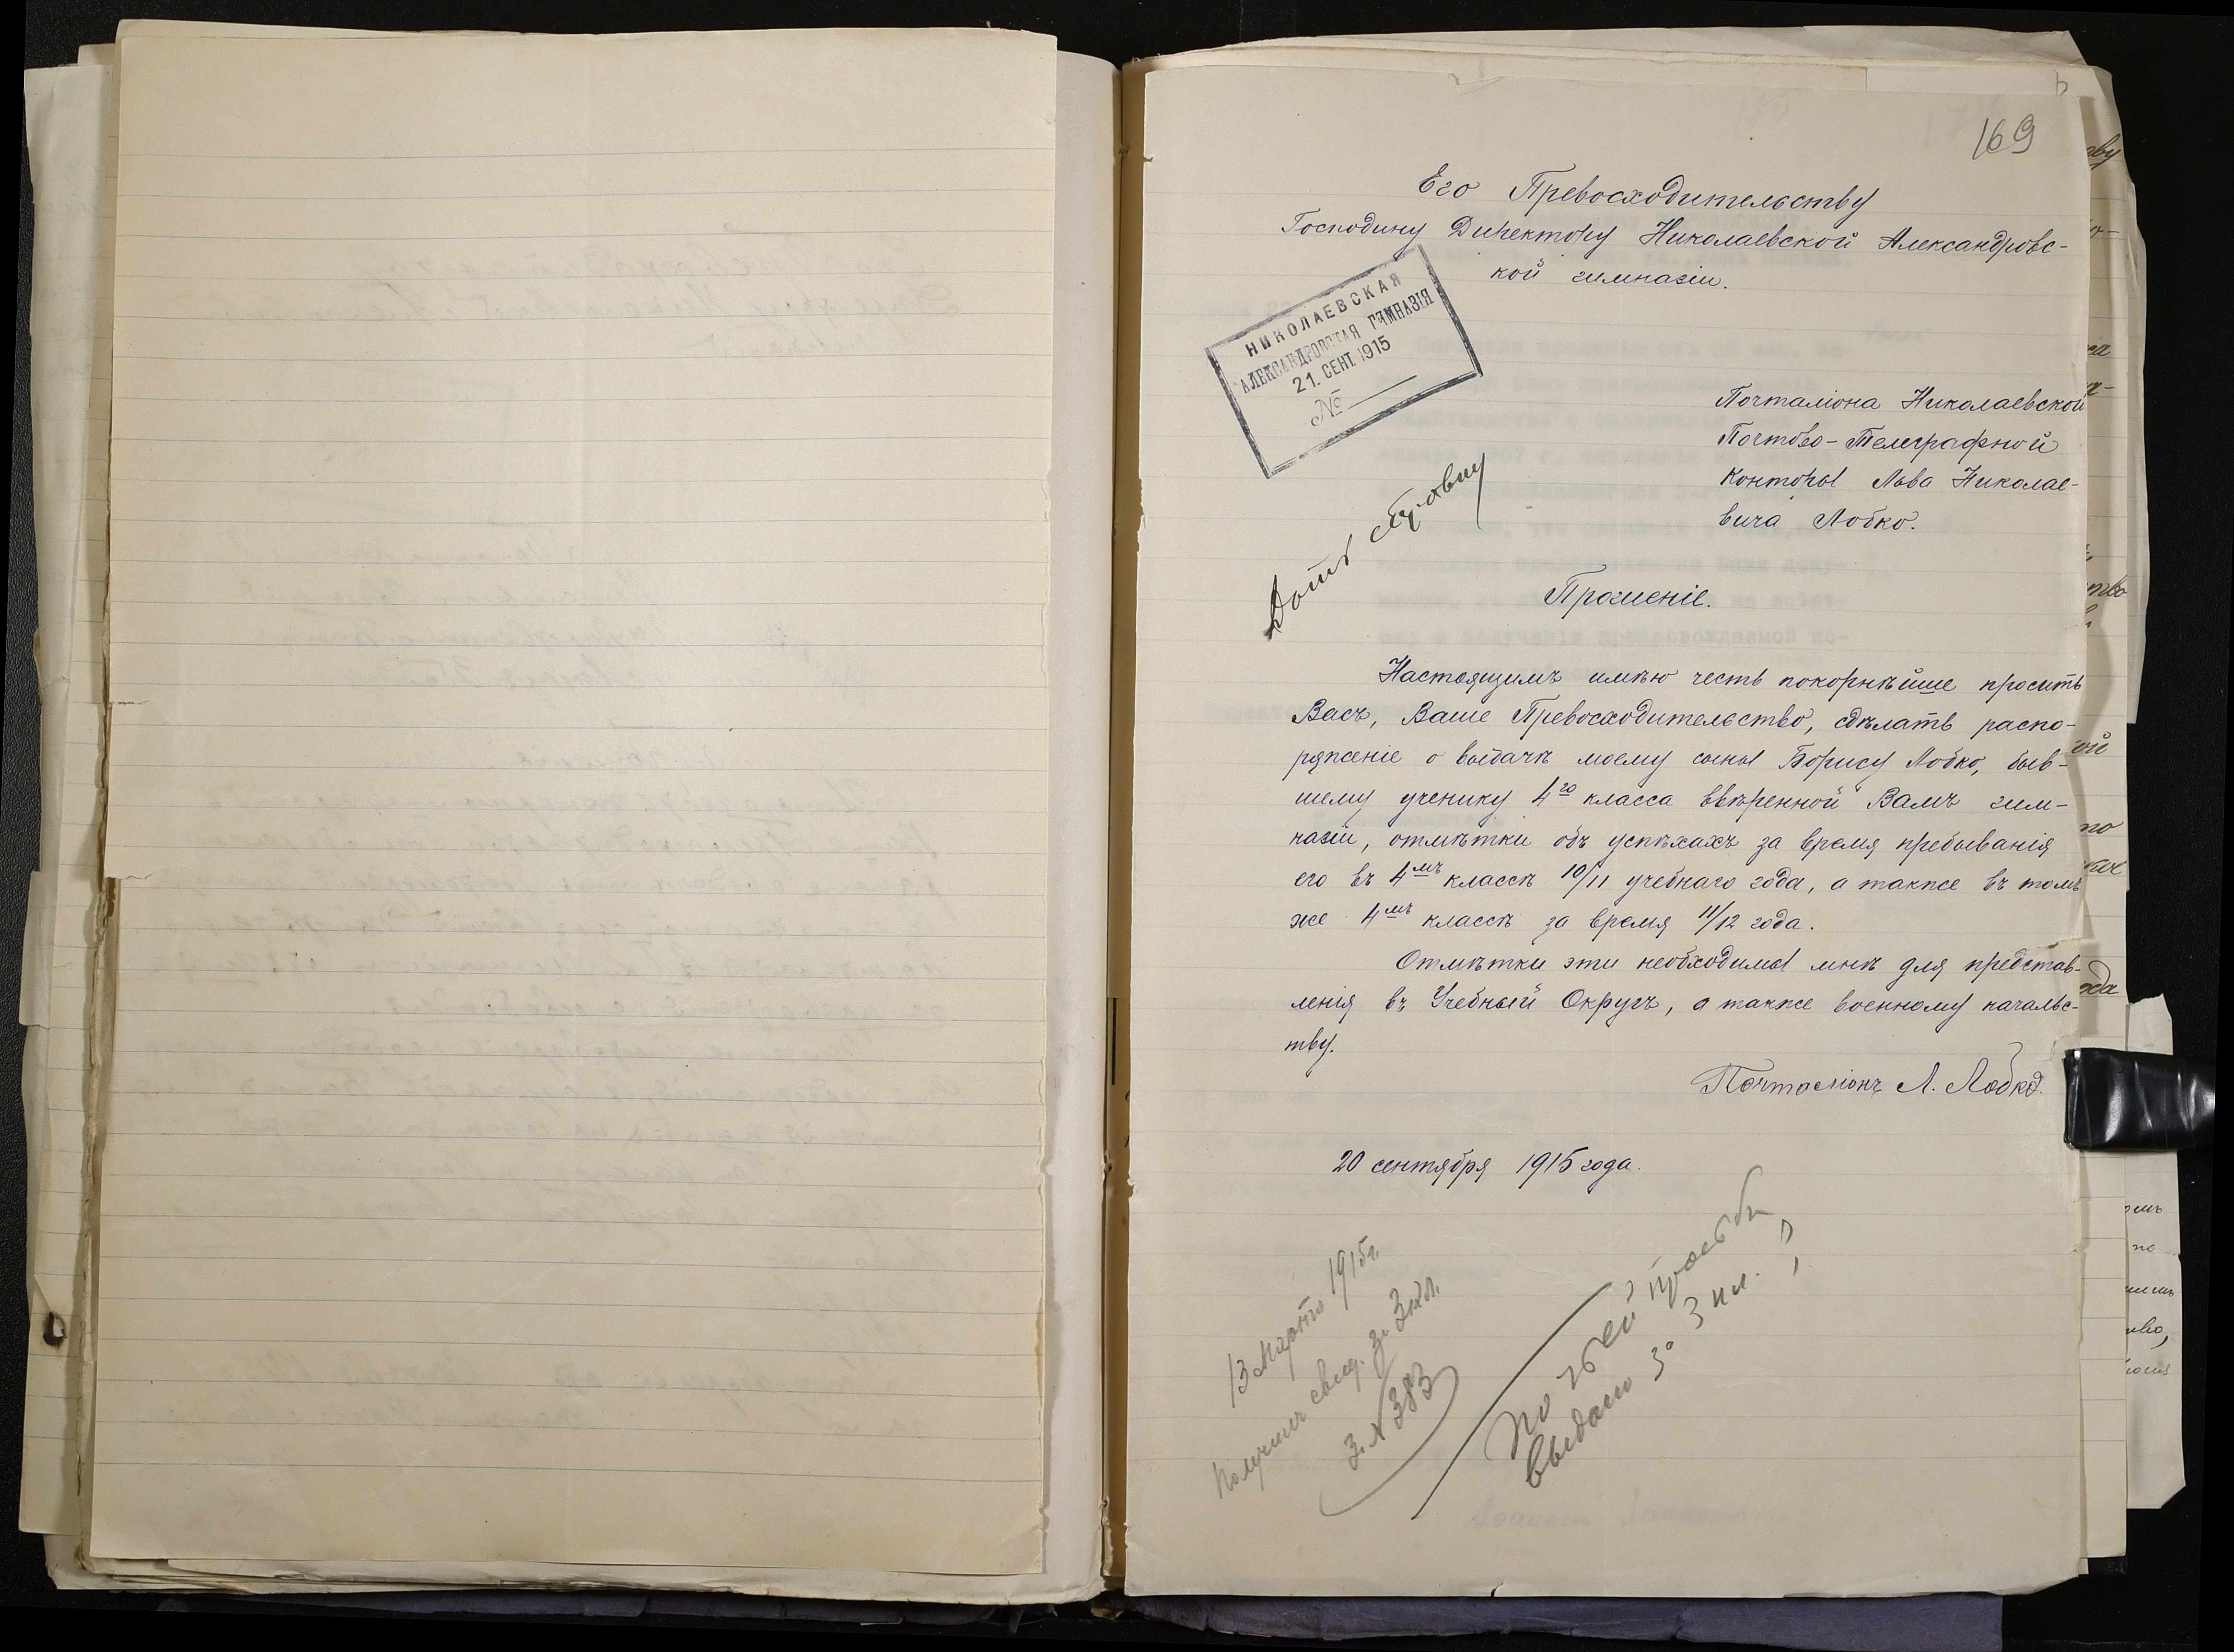 169
Его Превосходительству
Господину Директору Николаевской Александровс-
кой гимназіи.
НИКОЛАЕВСКАЯ
АЛЕКСАНДРОВСКАЯ ГИМНАЗІЯ
21. СЕНТ. 1915
№
Почталіона Николаевской
Почтово-Телеграфной
Конторы Льва Николае-
вича Лобко.
Дать справку
Прошеніе.
Настоящимъ имѣю честь покорнѣйше просить
Васъ, Ваше Превосходительство, сдѣлать распо-
ряженіе о выдачѣ моему сыны Борису Лобко, быв-
шему ученику 4го класса ввѣренной Вамъ гим-
назіи, отмѣтки объ успѣхахъ за время пребыванія
его въ 4мъ классѣ 10/11 учебнаго года, а также въ томъ
же 4мъ классѣ за время 11/12 года.
Отмѣтки эти необходимы мнѣ для представ-
ленія въ Учебный Округъ, а также военному начальс-
тву.
Почталіонъ Л. Лобко.
20 сентября 1915 года.
13 Марта 1915г
Получилъ свид. за 3 кл.
за № 383
по чьей просьбѣ
выдано за 3 кл. ?